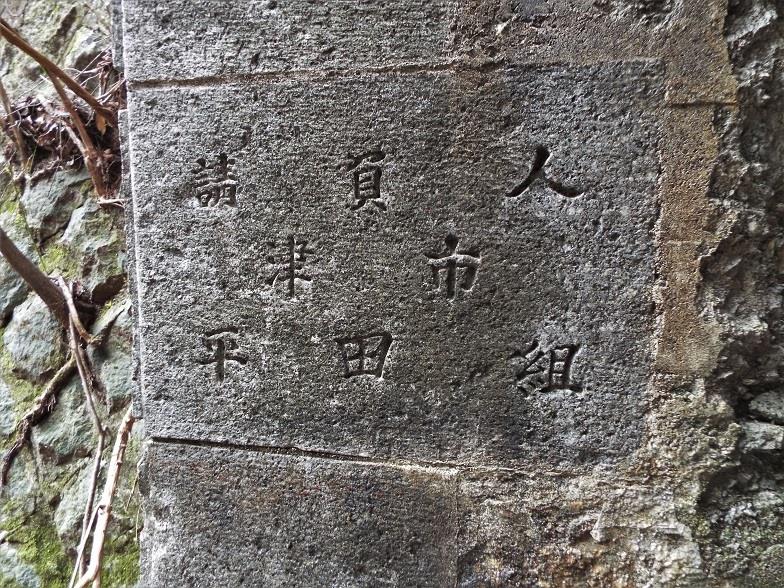 請負人
津市
平田組